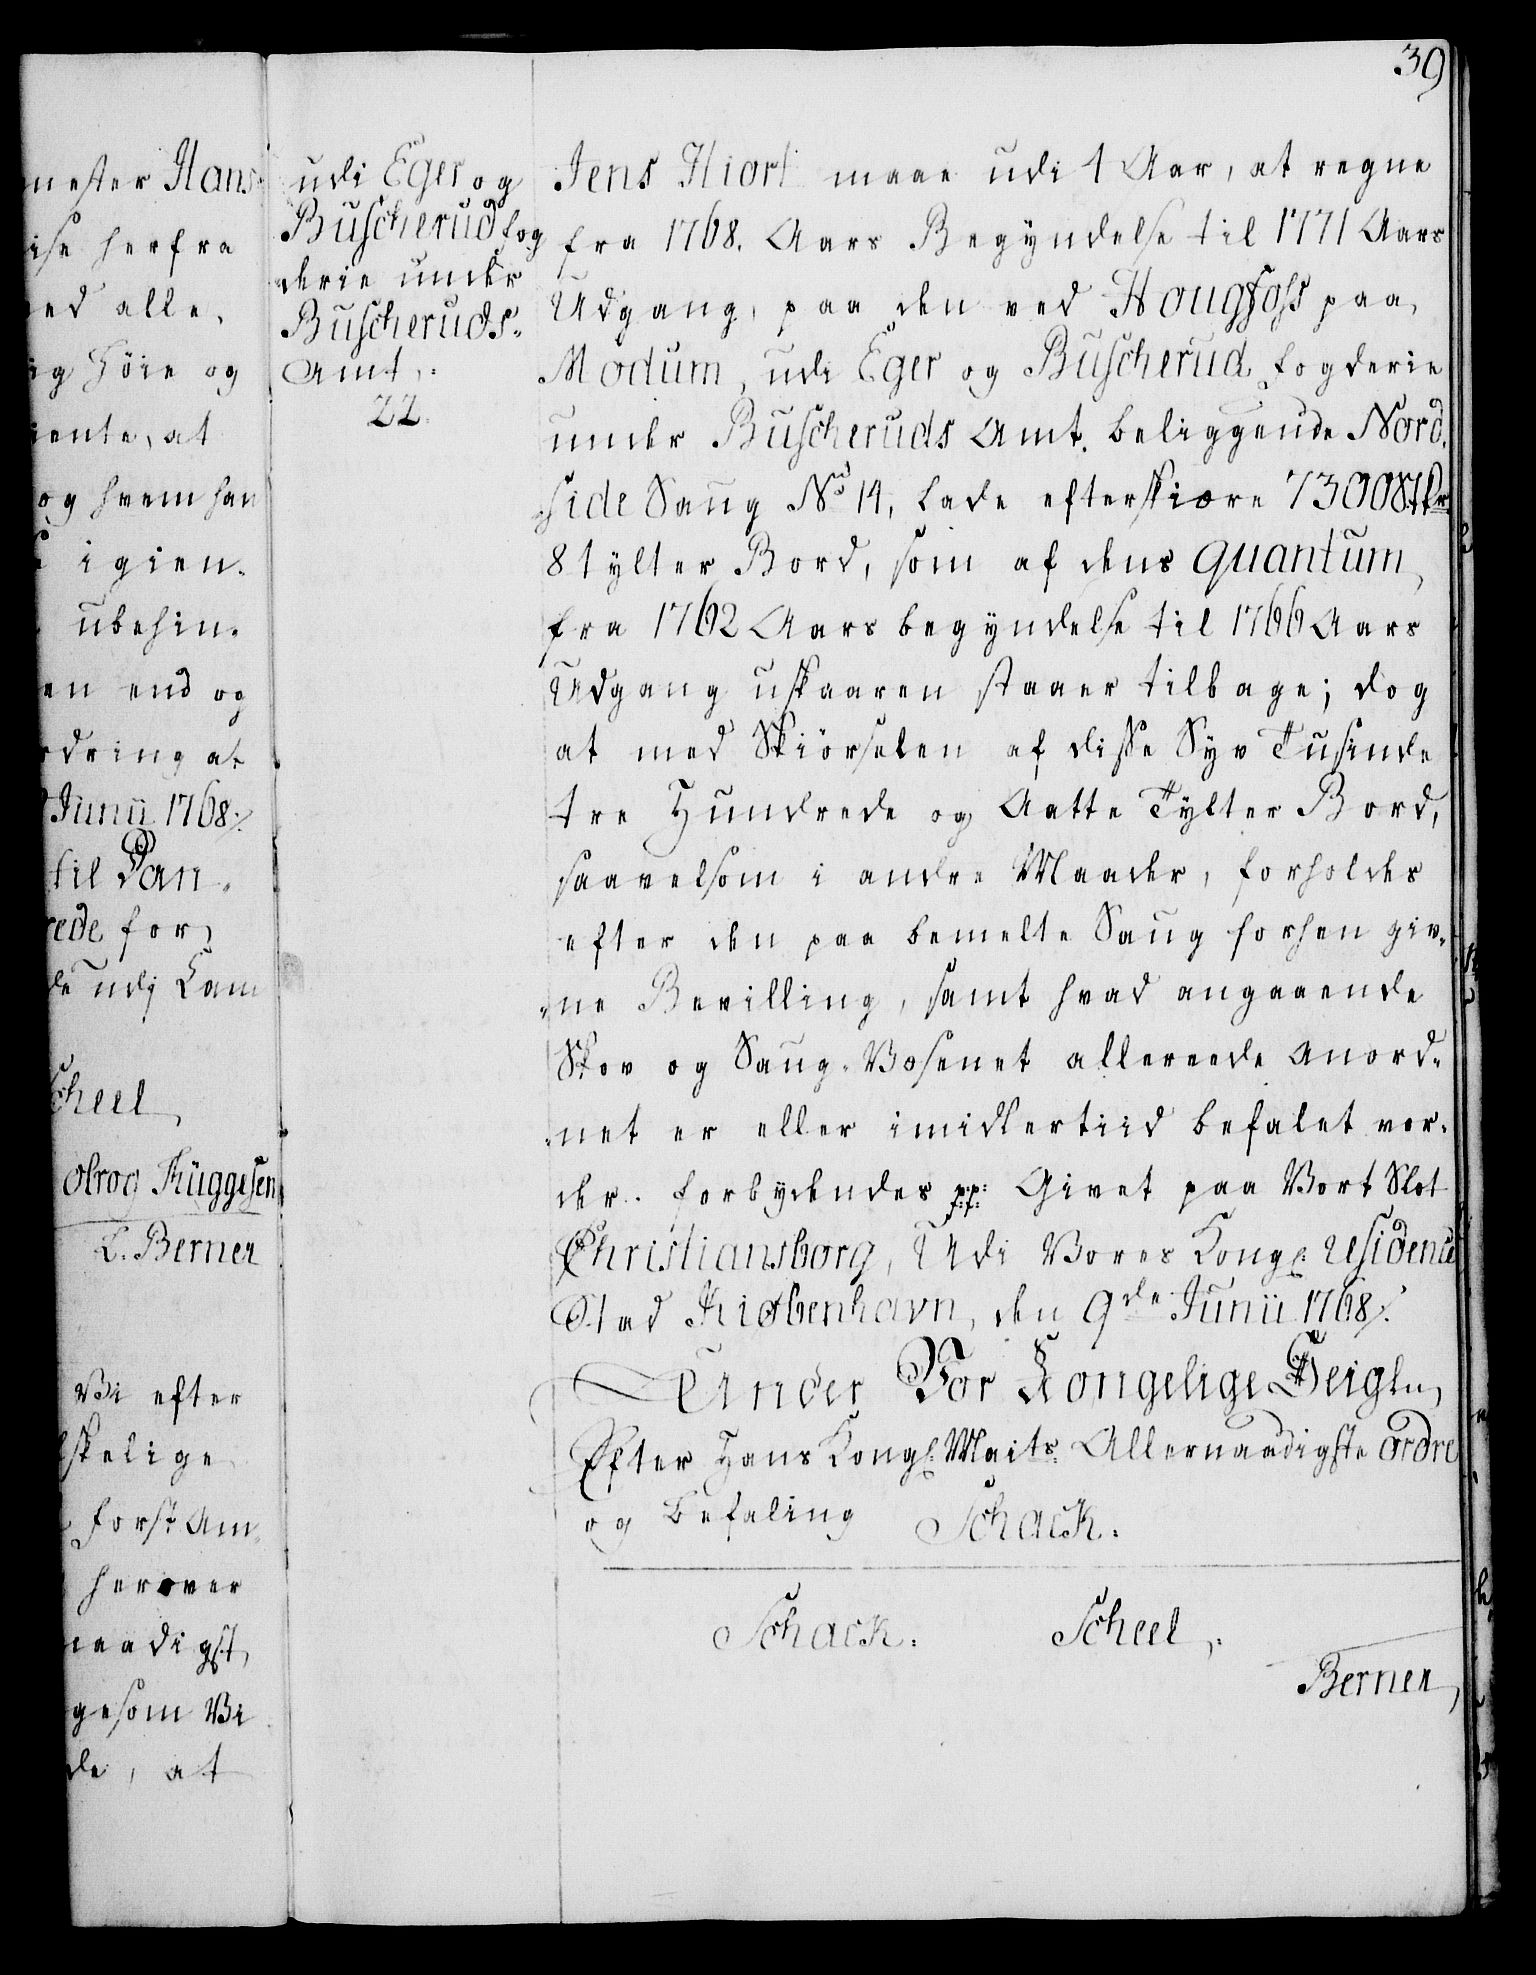 39
mester Hans
ise herfra
ed alle,
ig Høie og
iente, at
og hvem han
igien.
ubehin-
en end og
rdring at
Junii 1768 ./.
til Dan-
rede for,
de udj Cam
Scheel,
olrog Küggesen
C. Berner
Vi efter
lskelige
forst Am-
herover
naadigst,
gesom Vi
de, at
udi Eger og
Buscherud fog
derie under
Buscheruds-
Amt.
22.
Jens Hiort maae udi 4 Aar, at regne
fra 1768. Aars Begyndelse til 1771 Aars
Udgang, paa den ved Hougfoss paa
Modum, udi Eger og Buscherud fogderie
under Buscheruds Amt. beliggende Nord,
side Saug No 14, lade efterskiære 7300 Stkr
8 tylter Bord, som af dens quantum
fra 1762 Aars begyndelse til 1766 Aars
Udgang uskaaren staaer tilbage; dog
at med Skiørselen af disse Syv Tusinde
tre Hundrede og Aatte Tylter Bord,
saavelsom i andre Maader, forholdes
efter den paa bemelte Saug forhen giv-
ne Bevilling, samt hvad angaaende
Skov og Saug-Væsenet allereede anord-
net er eller imidlertiid befalet vor-
der. forbydendes p:p: Givet paa Vort Slot
Christiansborg, Udi Vores Kongl: residence
Stad Kiøbenhavn, den 9de Junii 1768 ./.
Under Vor Kongelige Seigln,
Efter Hans Kongl: Maits Allernaadigste ordre
og Befaling Schack.
Schack. Scheel.
Berner,